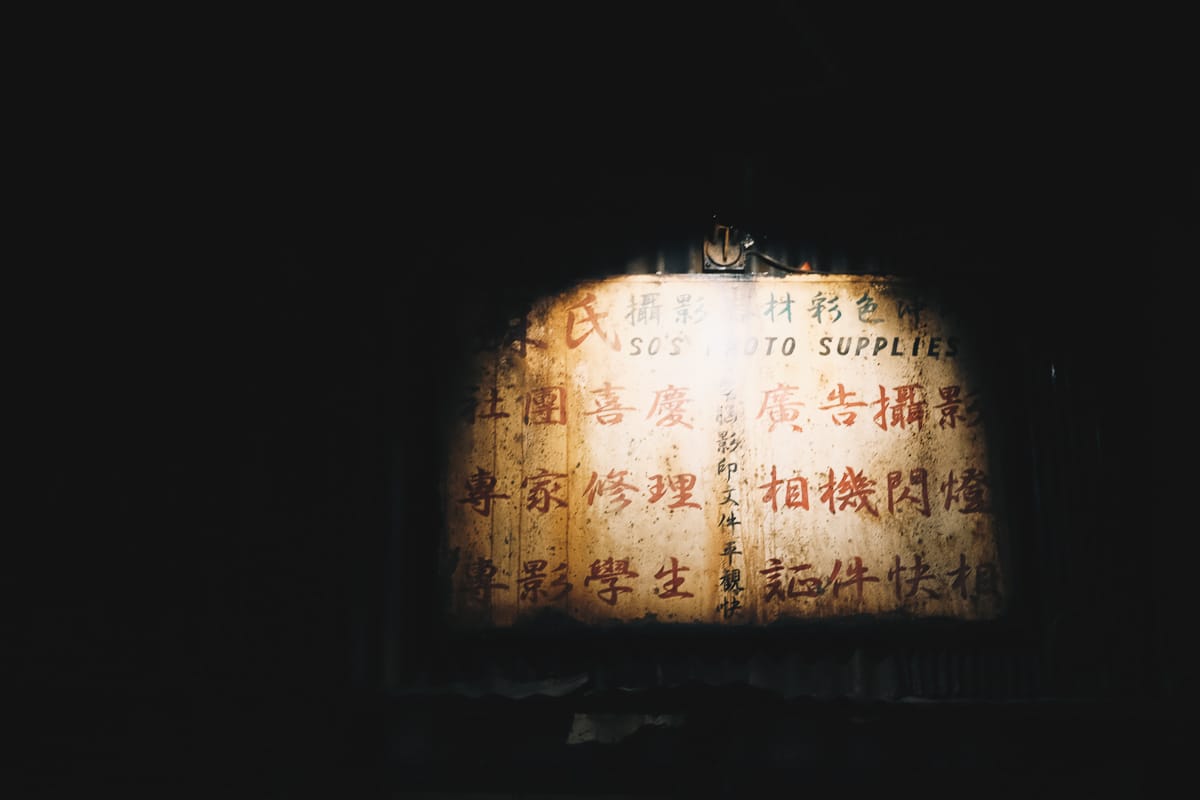 氏
攝影 材彩色
SO'S PHOTO SUPPLIES
社團喜慶 廣告攝影
專家修理 相機閃燈
專影學生 証件快相
腦影印文件平靚快